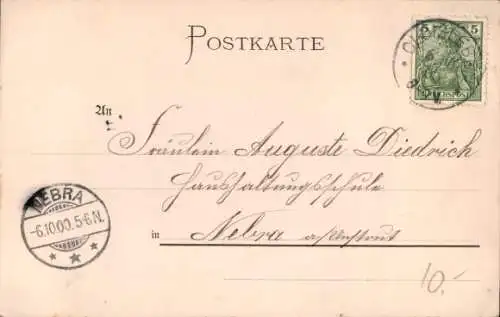 POSTKARTE
5 5
An
Fräulein Auguste Diedrich
Haushaltungsschule
in Nebra a/Unstrut
NEBRA
-6.10.00.5-6N.
10.-